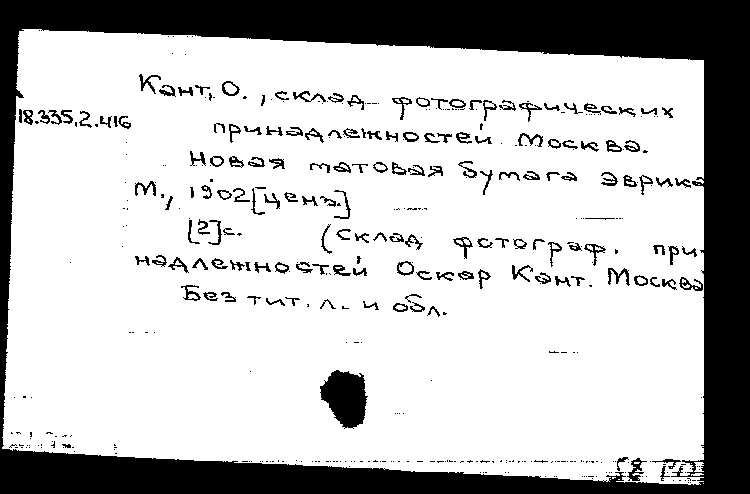 Кант, О., склад фотографических
18.335.2.416
принадлежностей Москва.
Новая матовая бумага Эврика
М., 1902 [ценз.]
[2]с. (Склад фотограф. при-
надлежностей Оскар Кант. Москва
Без тит. л. и обл.